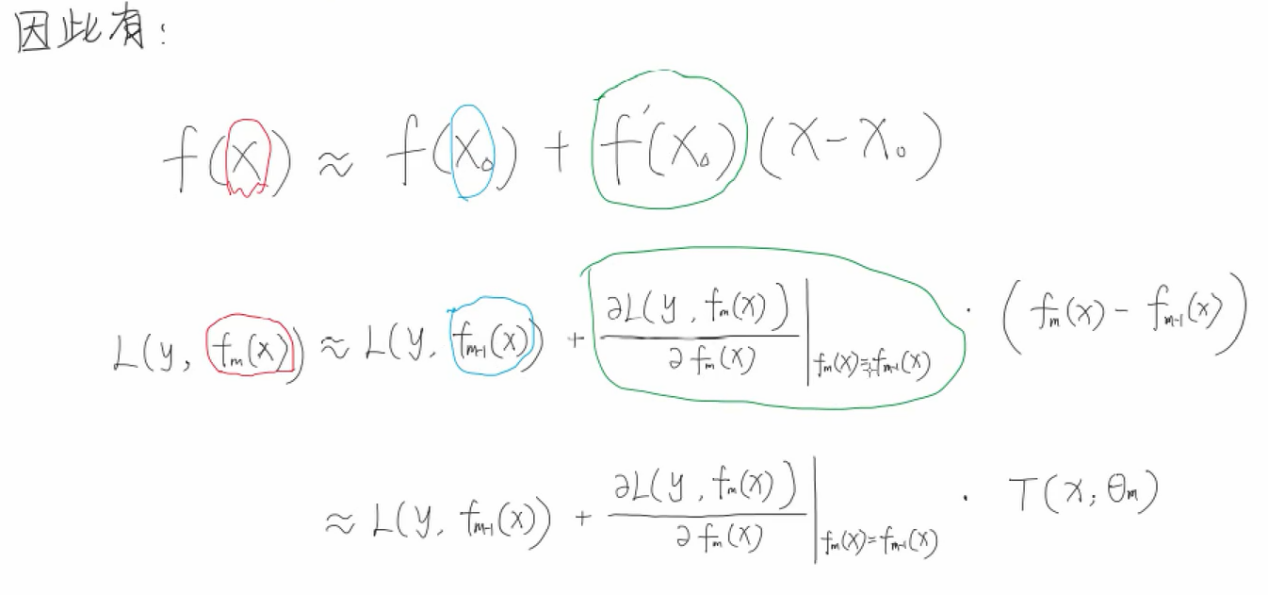 因此有:
f(x) ≈ f(x₀) + f'(x₀)(x-x₀)
L(y, fₘ(x)) ≈ L(y, fₘ₋₁(x)) + ∂L(y, fₘ(x))/∂fₘ(x) |fₘ(x)=fₘ₋₁(x) · (fₘ(x) - fₘ₋₁(x))
≈ L(y, fₘ₋₁(x)) + ∂L(y, fₘ(x))/∂fₘ(x) |fₘ(x)=fₘ₋₁(x) · T(x; θₘ)